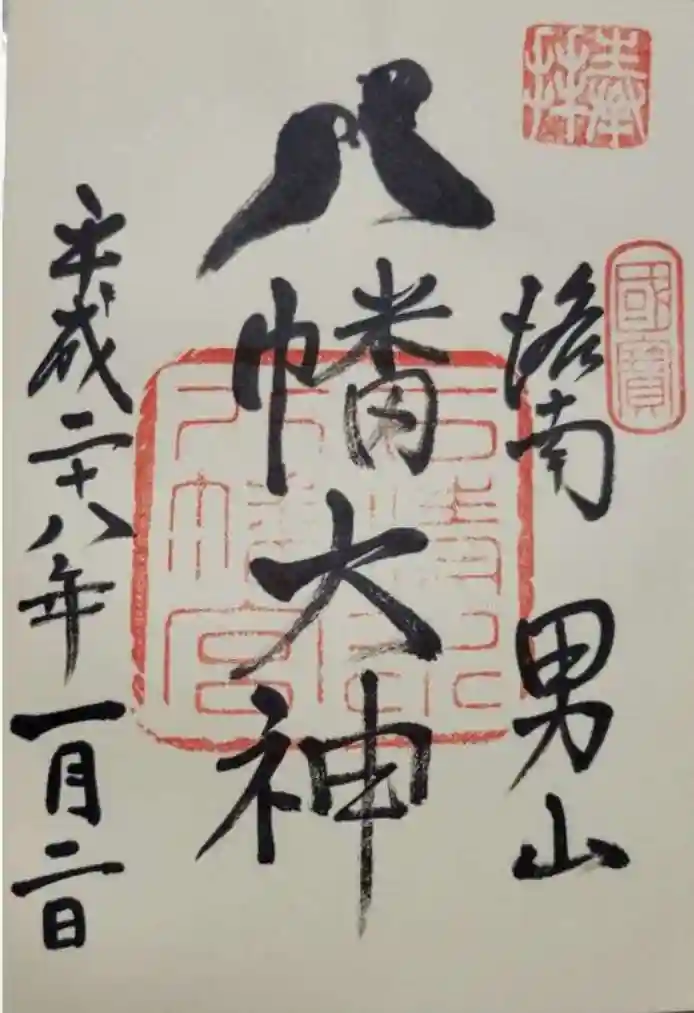 奉拝
國寶
洛南 男山
八幡大神
石清水八幡宮
平成二十八年一月二日